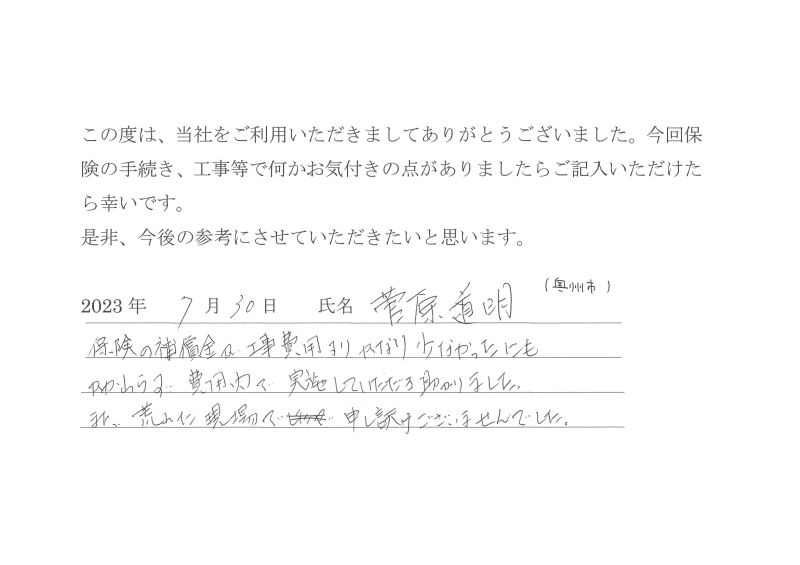 この度は、当社をご利用いただきましてありがとうございました。今回保
険の手続き、工事等で何かお気付きの点がありましたらご記入いただけた
ら幸いです。
是非、今後の参考にさせていただきたいと思います。
(奥州市)
2023 年 7 月 30 日 氏名 菅原道明
保険の補償金が工事費用よりかなり少なかったにも
かかわらず、費用内で実施していただき助かりました。
また、荒れた現場で 申し訳ございませんでした。